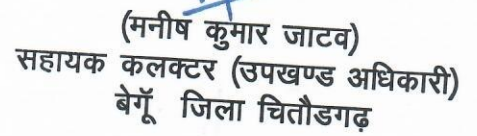 (मनीष कुमार जाटव)
सहायक कलक्टर (उपखण्ड अधिकारी)
बेगूॅ जिला चितौडगढ़